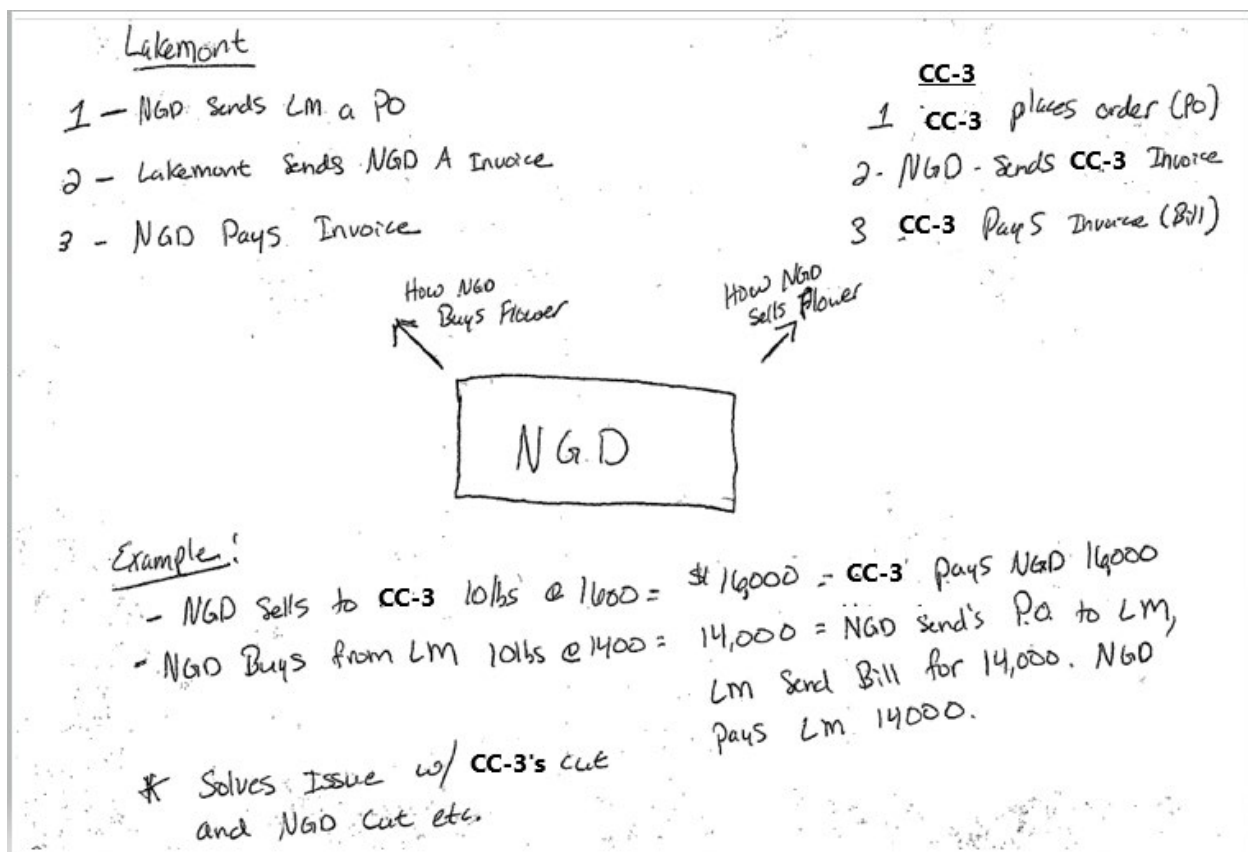 Lakemont
1 - NGD Sends LM a PO
2 - Lakemont Sends NGD A Invoice
3 - NGD Pays Invoice
CC-3
1 CC-3 places order (PO)
2 - NGD - Sends CC-3 Invoice
3 CC-3 Pays Invoice (Bill)
How NGD
Buys Flower
How NGD
Sells Flower
NGD
Example:
- NGD Sells to CC-3 10lbs @ 1600 = $16,000 = CC-3 pays NGD 16000
- NGD Buys from LM 10lbs @ 1400 = 14,000 = NGD Send's P.O. to LM,
LM Send Bill for 14,000. NGD
pays LM 14000.
* Solves Issue w/ CC-3's cut
and NGD Cut etc.